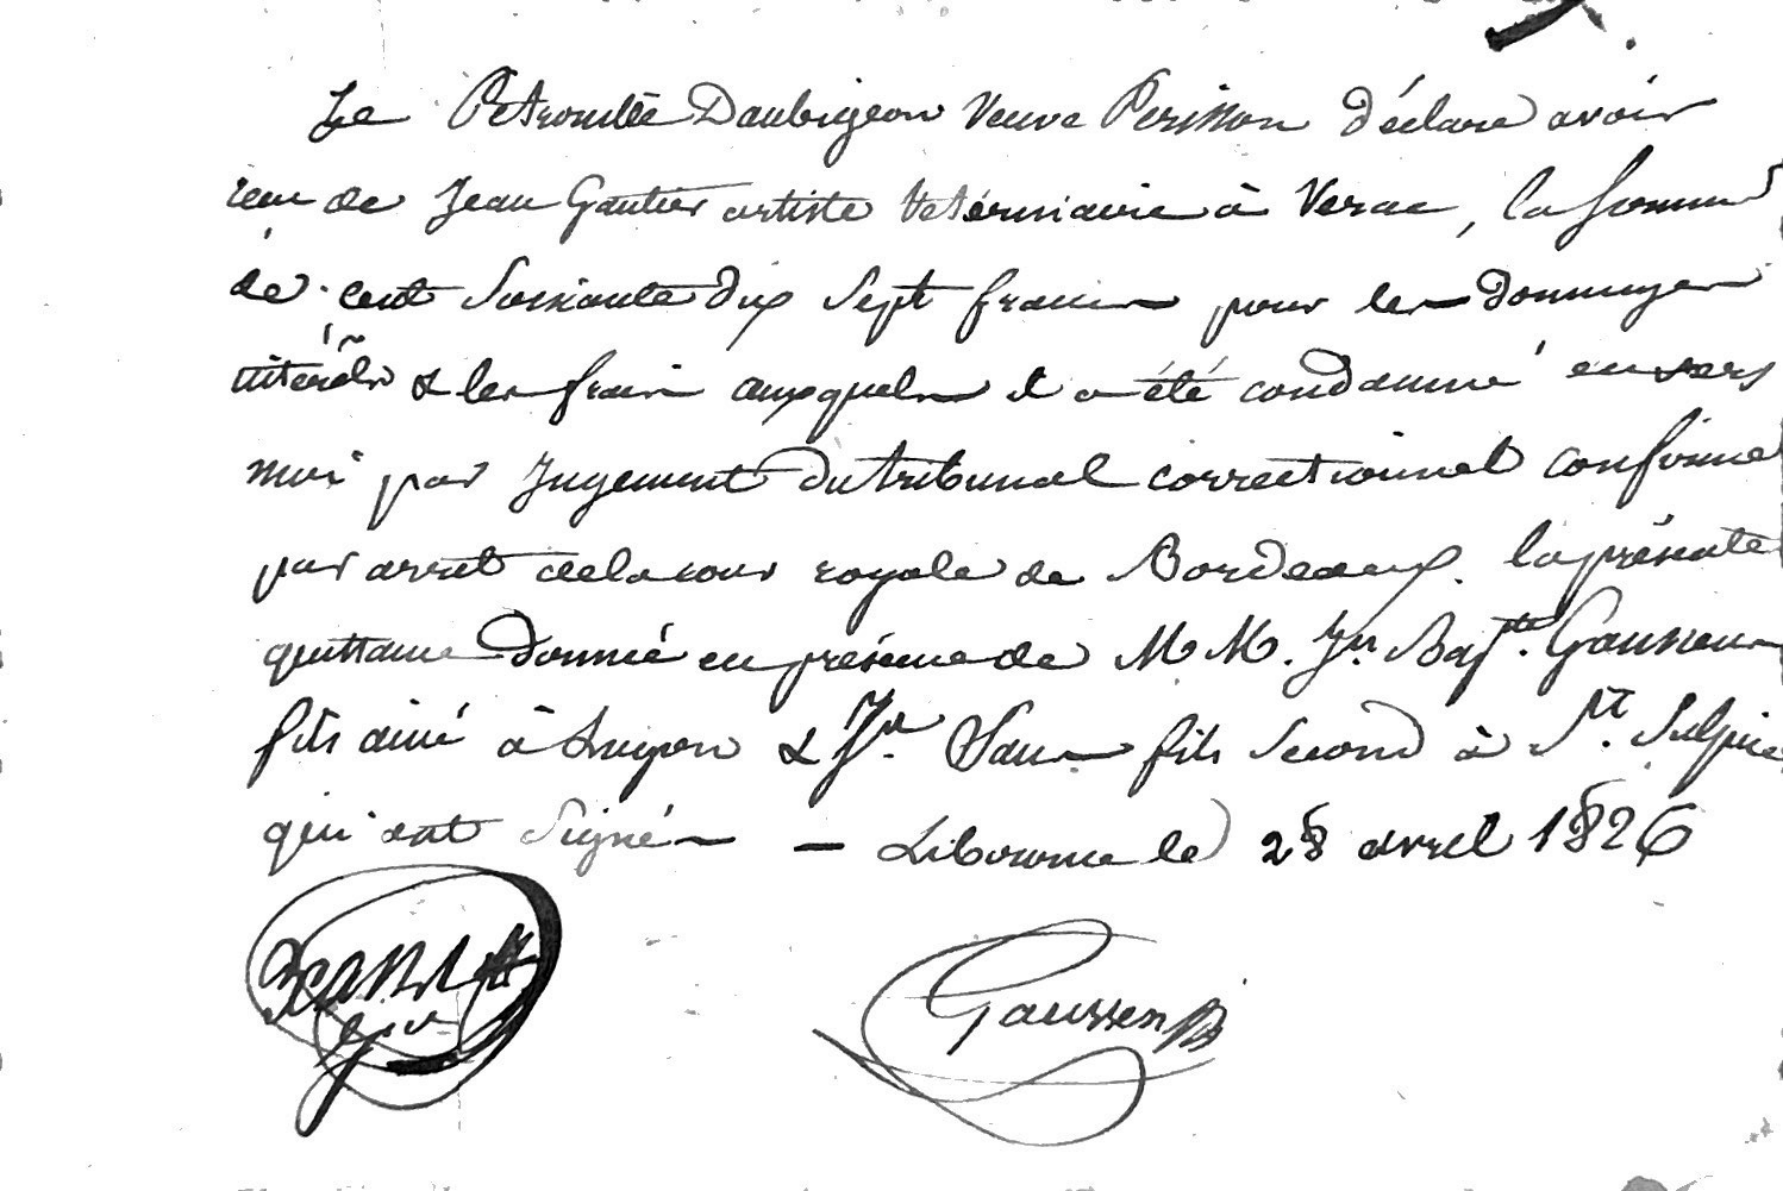 Je Petronille Daubigeon Veuve Perisson déclare avoir
reçu de Jean Gautier artiste vétérinaire à Verac, la somme
de cent soixante dix sept francs pour les dommages
intérêts & les frais auxquels il a été condamné envers
moi par jugement du tribunal correctionnel confirmé
par arret de la cour royale de Bordeaux. la présente
quittance donnée en présence de M M. Jn. Bapte. Gaussen
fils ainé à Lugon & Jn. fils second à St. Sulpice
qui ont signé — Libourne le 28 avril 1826
Gaussen